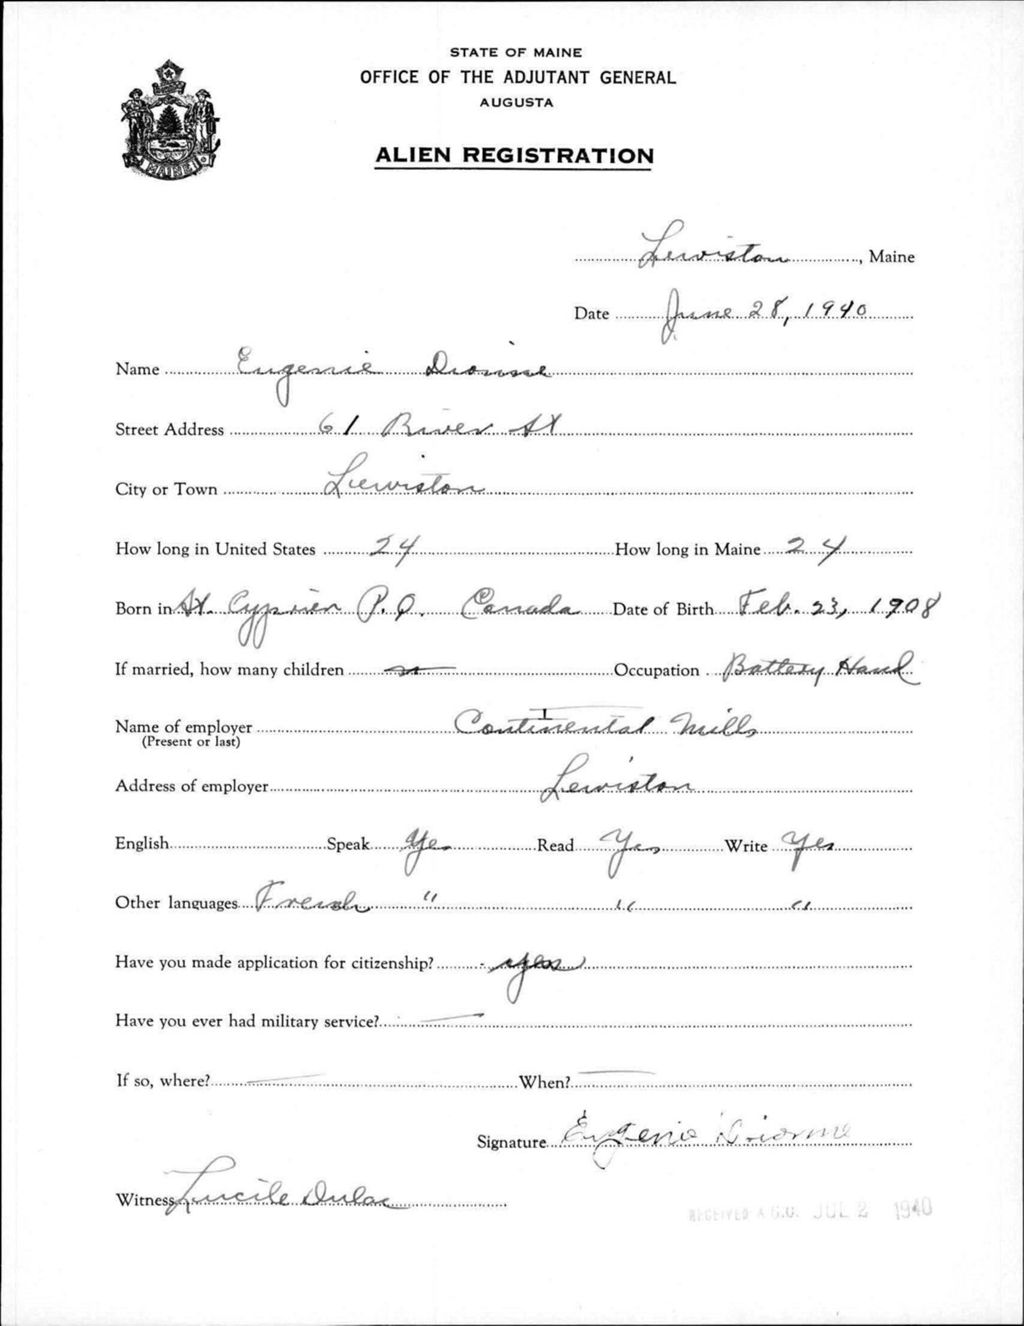 STATE OF MAINE
OFFICE OF THE ADJUTANT GENERAL
AUGUSTA
MAINE
ALIEN REGISTRATION
Lewiston, Maine
Date June 28, 1940
Name Eugenie Dionne
Street Address 61 River St
City or Town Lewiston
How long in United States 24 How long in Maine 24
Born in St. Cyprien P.Q. Canada Date of Birth Feb. 23, 1908
If married, how many children Occupation Battery Hand
Name of employer Continental Mills
(Present or last)
Address of employer Lewiston
English Speak Yes Read Yes Write Yes
Other languages French " " "
Have you made application for citizenship? yes
Have you ever had military service? —
If so, where? — When? —
Signature Eugenie Dionne
Witness Lucile Dulac
RECEIVED A.G.O. JUL 2 1940